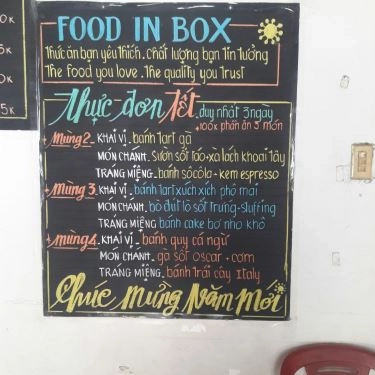 0K
0K
5K
FOOD IN BOX
Thức ăn bạn yêu thích. chất lượng bạn tin tưởng
The food you love. The quality you trust
Thực đơn Tết duy nhất 3 ngày
100k phần ăn 3 món
Mùng 2 KHAI VỊ. bánh tart gà
MÓN CHÁNH. Sườn sốt táo. xà lách khoai tây
TRÁNG MIỆNG. bánh sôcôla + kem espresso
Mùng 3 KHAI VỊ. bánh tart xúc xích phô mai
MÓN CHÁNH. bò đút lò sốt trứng. stuffing
TRÁNG MIỆNG bánh cake bơ nho khô
mùng 4 KHAI VỊ. bánh quy cá ngừ
MÓN CHÁNH. gà sốt oscar + cơm
TRÁNG MIỆNG. bánh trái cây Italy
Chúc Mừng Năm Mới